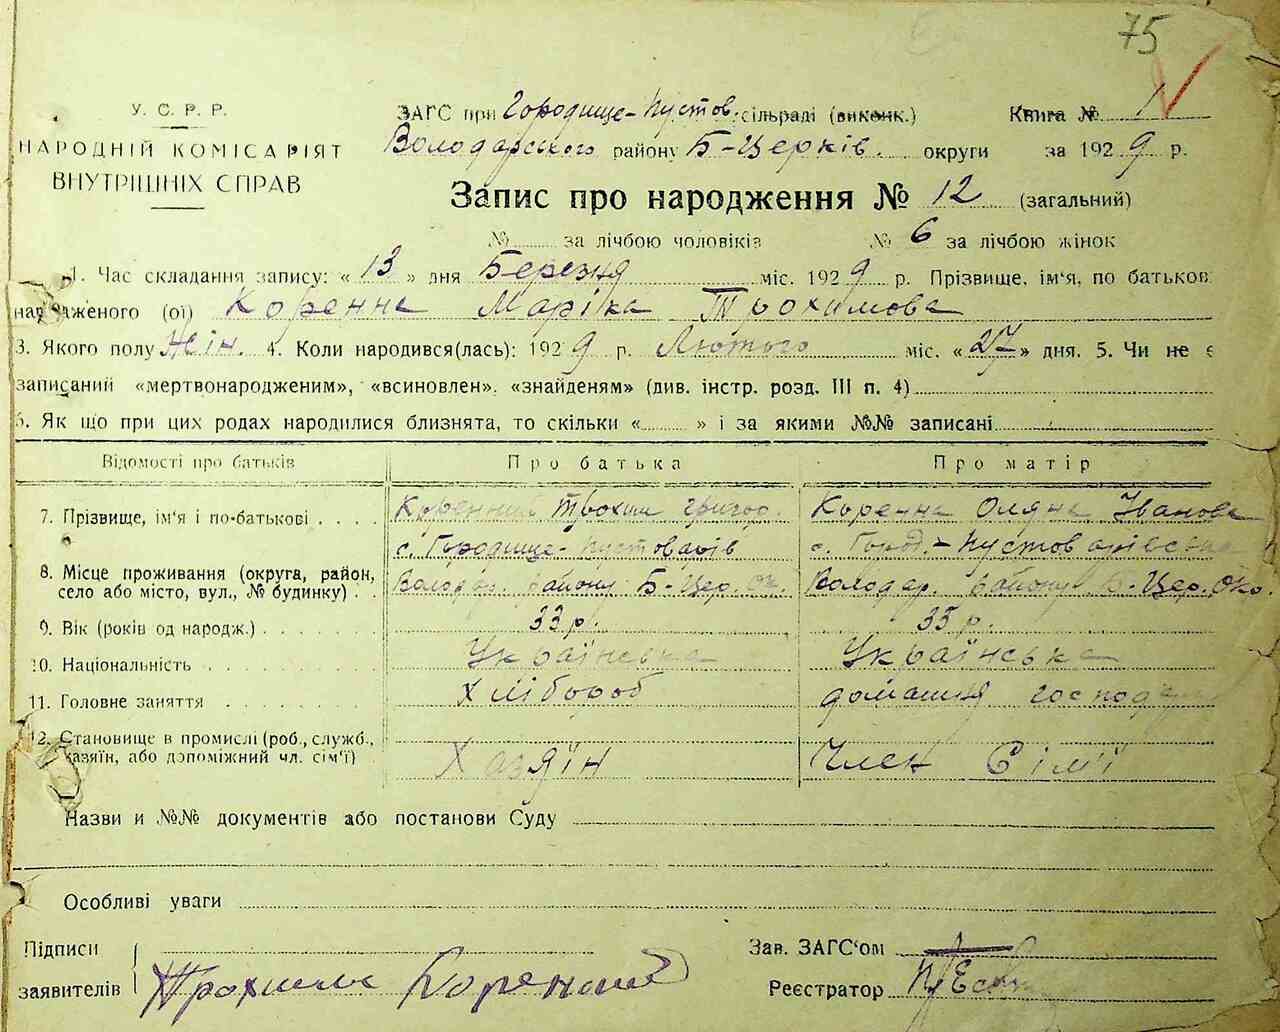 75
У. С. Р. Р.
НАРОДНІЙ КОМІСАРІЯТ
ВНУТРІШНІХ СПРАВ
ЗАГС при Городище-Пустов. сільраді (виконк.) Книга № 1
Володарського району Б-Церків. округи за 1929 р.
Запис про народження № 12 (загальний)
№ за лічбою чоловіків № 6 за лічбою жінок
1. Час складання запису: « 13 » дня Березня міс. 1929 р. Прізвище, ім'я, по батьков
народженого (ої) Коренна Маріка Трохимова
3. Якого полу Жін. 4. Коли народився(лась): 1929 р. Лютого міс. « 27 » дня. 5. Чи не є
записаний «мертвонародженим», «всиновлен». «знайденям» (див. інстр. розд. III п. 4)
6. Як що при цих родах народилися близнята, то скільки « » і за якими №№ записані
Відомості про батьків Про батька Про матір
7. Прізвище, ім'я і по-батькові . . . . Коренний Трохим Григор. Коренна Оляна Іванова
с. Городище-Пустоварів с. Город.-Пустоварівська
8. Місце проживання (округа, район, село або місто, вул., № будинку) . . Володар. району Б-Цер. ок. Володар. району Б-Цер. Окр.
9. Вік (років од народж.) 33 р. 35 р.
10. Національність Українська Українська
11. Головне заняття Хлібороб домашня господ
12. Становище в промислі (роб., служб., хазяїн, або допоміжний чл. сім'ї) Хазяїн Член Сім'ї
Назви и №№ документів або постанови Суду
Особливі уваги
Підписи Зав. ЗАГС'ом
заявителів Трохим Коренний Реєстратор